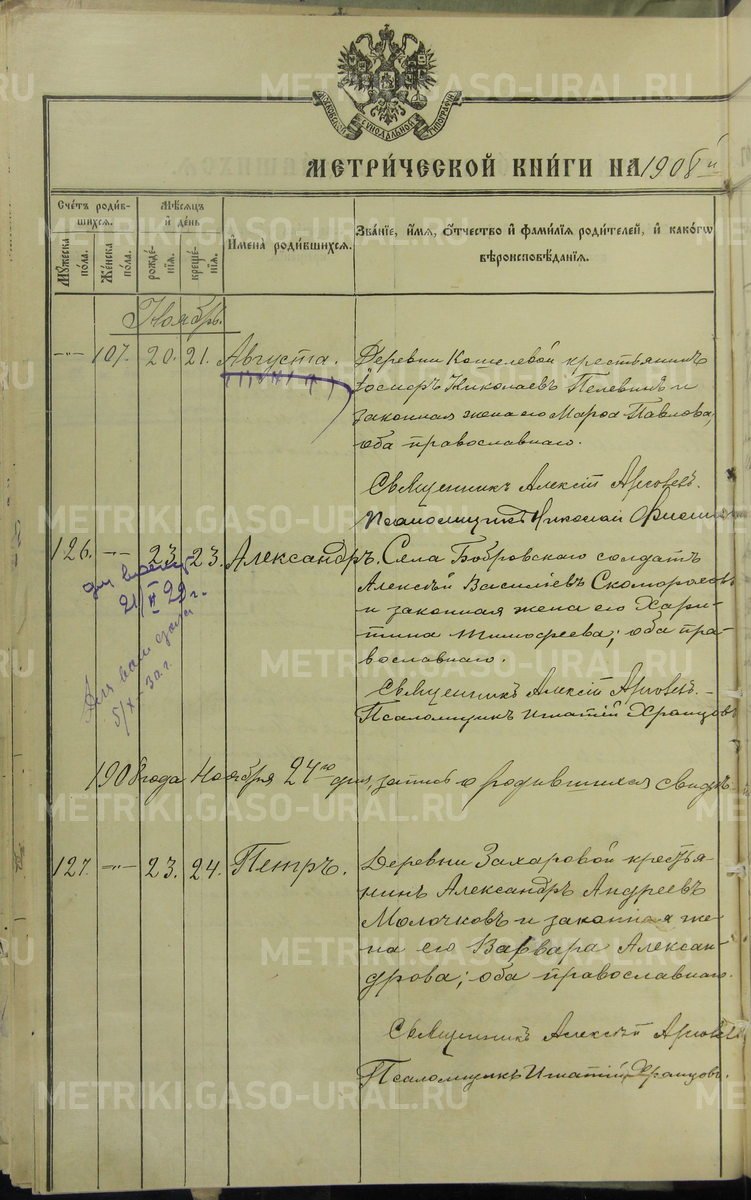 МОСКОВСКОЙ СѴНОДАЛЬНОЙ ТИПОГРАФІИ
МЕТРИ́ЧЕСКОЙ КНИ́ГИ НА 1908й
Сче́тъ роди́в-
шихся.
Му́жеска
по́ла.
Же́нска
по́ла.
Мѣ́сяцъ
и҆ де́нь
рожде́-
нїя.
креще́-
нїя.
И҆мена̀ роди́вшихся.
Зва́нїе, и҆́мя, ѻ҆́тчество и҆ фами́лїя роди́телей, и҆ како́гѡ
вѣроисповѣ́данїя.
Ноябрь.
-"- 107. 20. 21. Августа. Деревни Кошелевой крестьянинъ
Николаевъ Пелевинъ и
законная жена его Марѳа Павлова,
оба православнаго.
Священникъ Алексій
Псаломщикъ Николай
126. -"- 23. 23. Александръ. Села Бобровскаго солдатъ
Алексѣй Василіевъ Скомороховъ
и законная жена его Хари-
тина Тимофеева; оба пра-
вославнаго.
21/II 29 г.
5/X-30 г.
Священникъ Алексій
Псаломщикъ Игнатій Храмцовъ
1908 года Ноября 24го дня запись о родившихся свидѣ-
127. -"- 23. 24. Петръ. Деревни Захаровой крестья-
нинъ Александръ Андреевъ
Молочковъ и законная же-
на его Варвара Алексан-
дрова; оба православнаго.
Священникъ Алексѣй
Псаломщикъ Игнатій Храмцовъ.
METRIKI.GASO-URAL.RU